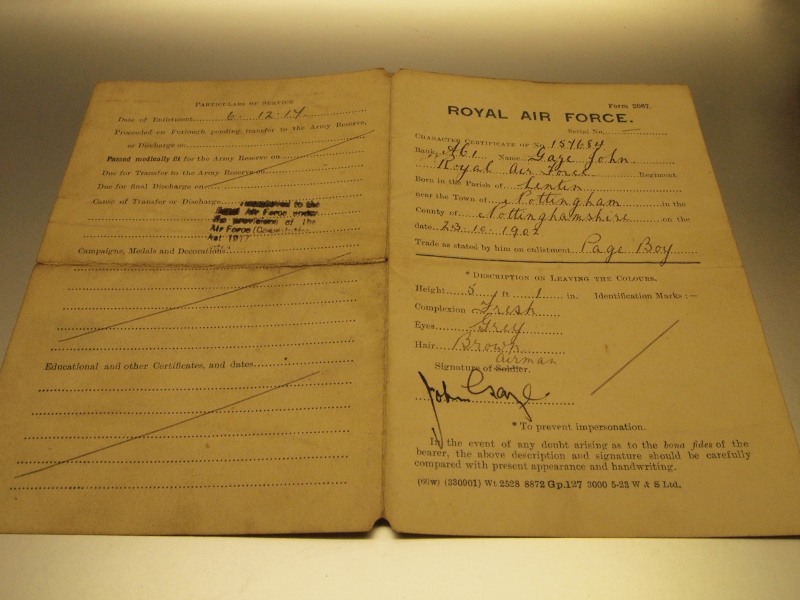 PARTICULARS OF SERVICE
Date of Enlistment 6. 12. 17.
Proceeded on Furlough pending transfer to the Army Reserve,
or Discharge on
Passed medically fit for the Army Reserve on
Due for Transfer to the Army Reserve on
Due for final Discharge on
Cause of Transfer or Discharge
to the
Royal Air Force under
the provisions of the
Air Force (
Act 1917
Campaigns, Medals and Decorations
Educational and other Certificates, and dates
Form 2067.
ROYAL AIR FORCE.
Serial No. —
CHARACTER CERTIFICATE OF No. 157684
Rank AC1 Name Gaze John
Royal Air Force Regiment.
Born in the Parish of Lentin
near the Town of Nottingham in the
County of Nottinghamshire on the
date 23.10.1902
Trade as stated by him on enlistment Page Boy
* DESCRIPTION ON LEAVING THE COLOURS.
Height 5 ft 1 in. Identification Marks :—
Complexion Fresh
Eyes Grey
Hair Brown
Airman
Signature of Soldier.
John Gaze
* To prevent impersonation.
In the event of any doubt arising as to the bona fides of the
bearer, the above description and signature should be carefully
compared with present appearance and handwriting.
(60w) (330901) Wt. 2528 8872 Gp.127 3000 5-23 W & S Ltd.